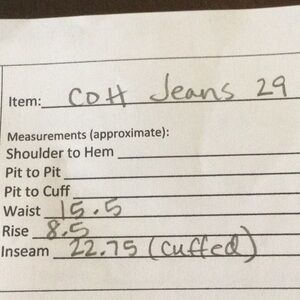 Item: COH Jeans 29
Measurements (approximate):
Shoulder to Hem
Pit to Pit
Pit to Cuff
Waist 15.5
Rise 8.5
Inseam 22.75 (cuffed)